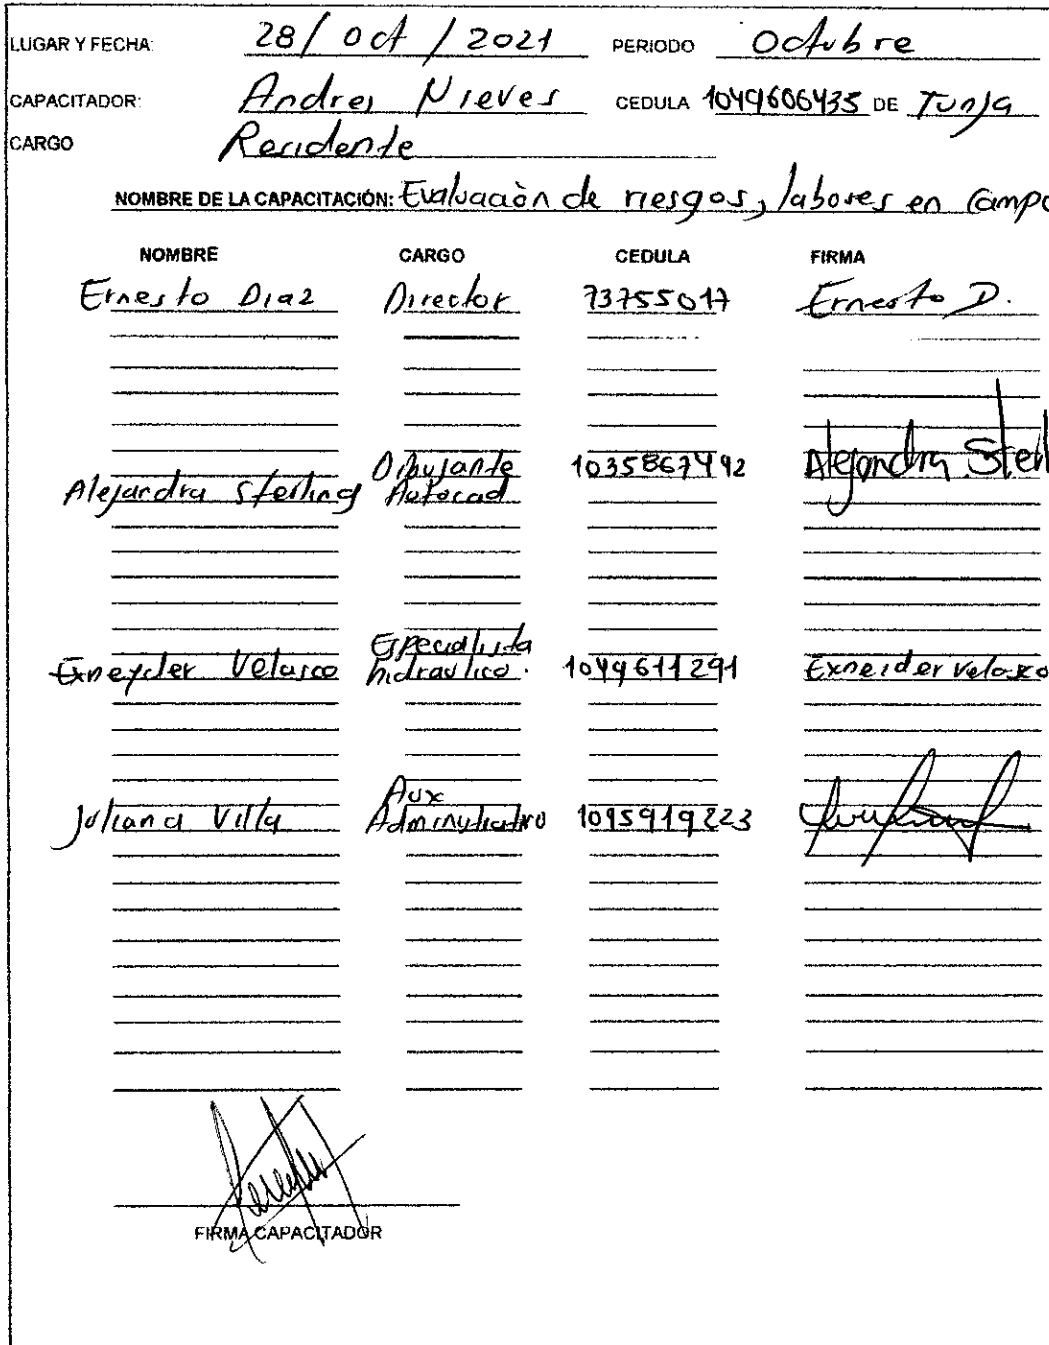 LUGAR Y FECHA: 28/ oct / 2021 PERIODO Octubre
CAPACITADOR: Andres Nieves CEDULA 1049606435 DE Tunja
CARGO Residente
NOMBRE DE LA CAPACITACIÓN: Evaluaciòn de riesgos, labores en Campo
NOMBRE CARGO CEDULA FIRMA
Ernesto Diaz Director 73755017 Ernesto D.
Alejandra Sterling Dibujante Autocad 1035867492 Alejandra Sterl
Exneyder Velasco Especialista hidraulico. 1049611291 Exneider Velasco
Juliana Villa Aux Administrativo 1095919223
FIRMA CAPACITADOR